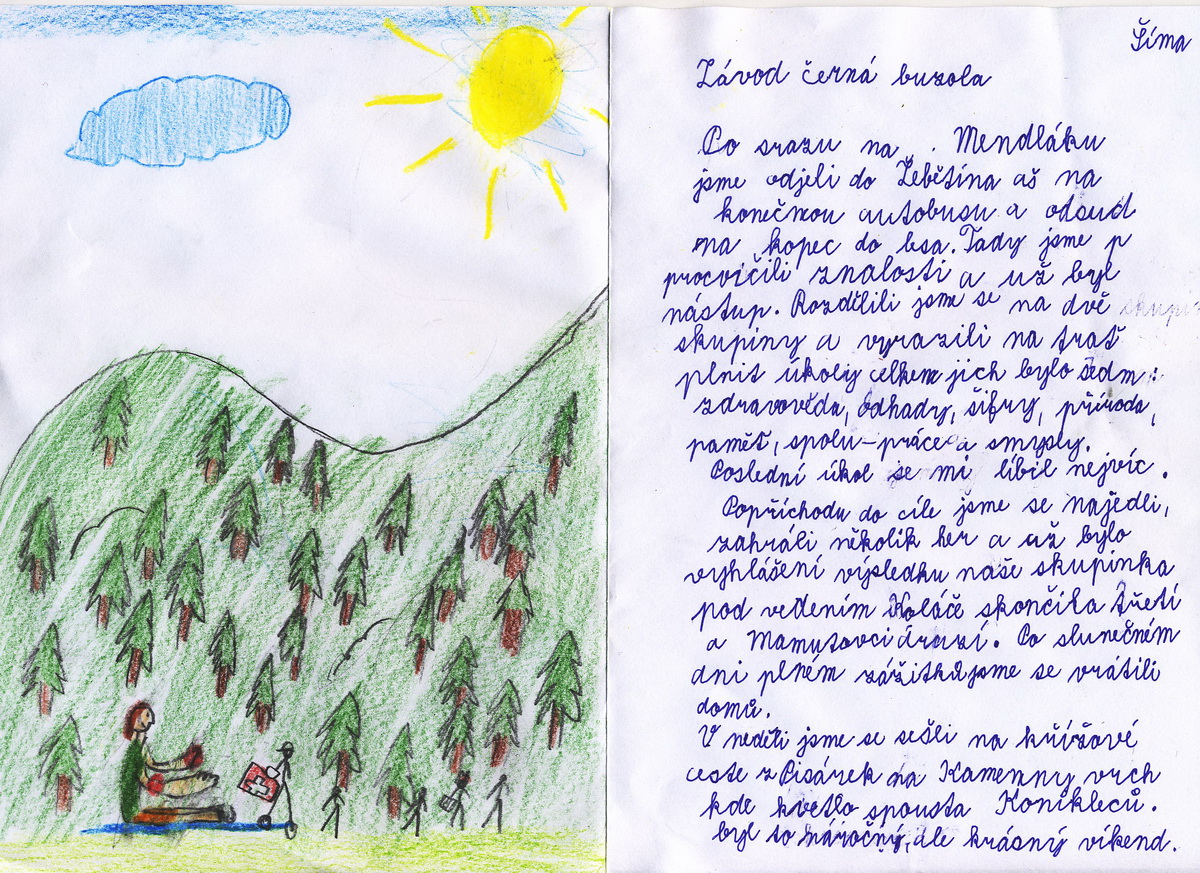 Šíma
Závod černá buzola
Po srazu na . Mendláku
jsme odjeli do Žebětína aš na
konečnou autobusu a odsud
na kopec do lesa. Tady jsme p
procvičili znalosti a už byl
nástup. Rozdílili jsme se na dvě skupin
skupiny a vyrazili na trať
plnit úkoly celkem jich bylo sedm:
zdravověda, odhady, šifry, příroda,
paměť, spolu-práce a smysly.
Poslední úkol se mi líbil nejvíc.
Popříchodu do cíle jsme se najedli,
zahráli několik her a už bylo
vyhlášení výsledku naše skupinka
pod vedením Koláče skončila třetí
a Mamutovci drazí. Po slunečném
dni plném zážitků jsme se vrátili
domů.
V neděli jsme se sešli na křížové
ceste z Pisárek na Kamenny vrch
kde kvetlo spousta Konikleců.
byl to náročný, ale krásný víkend.